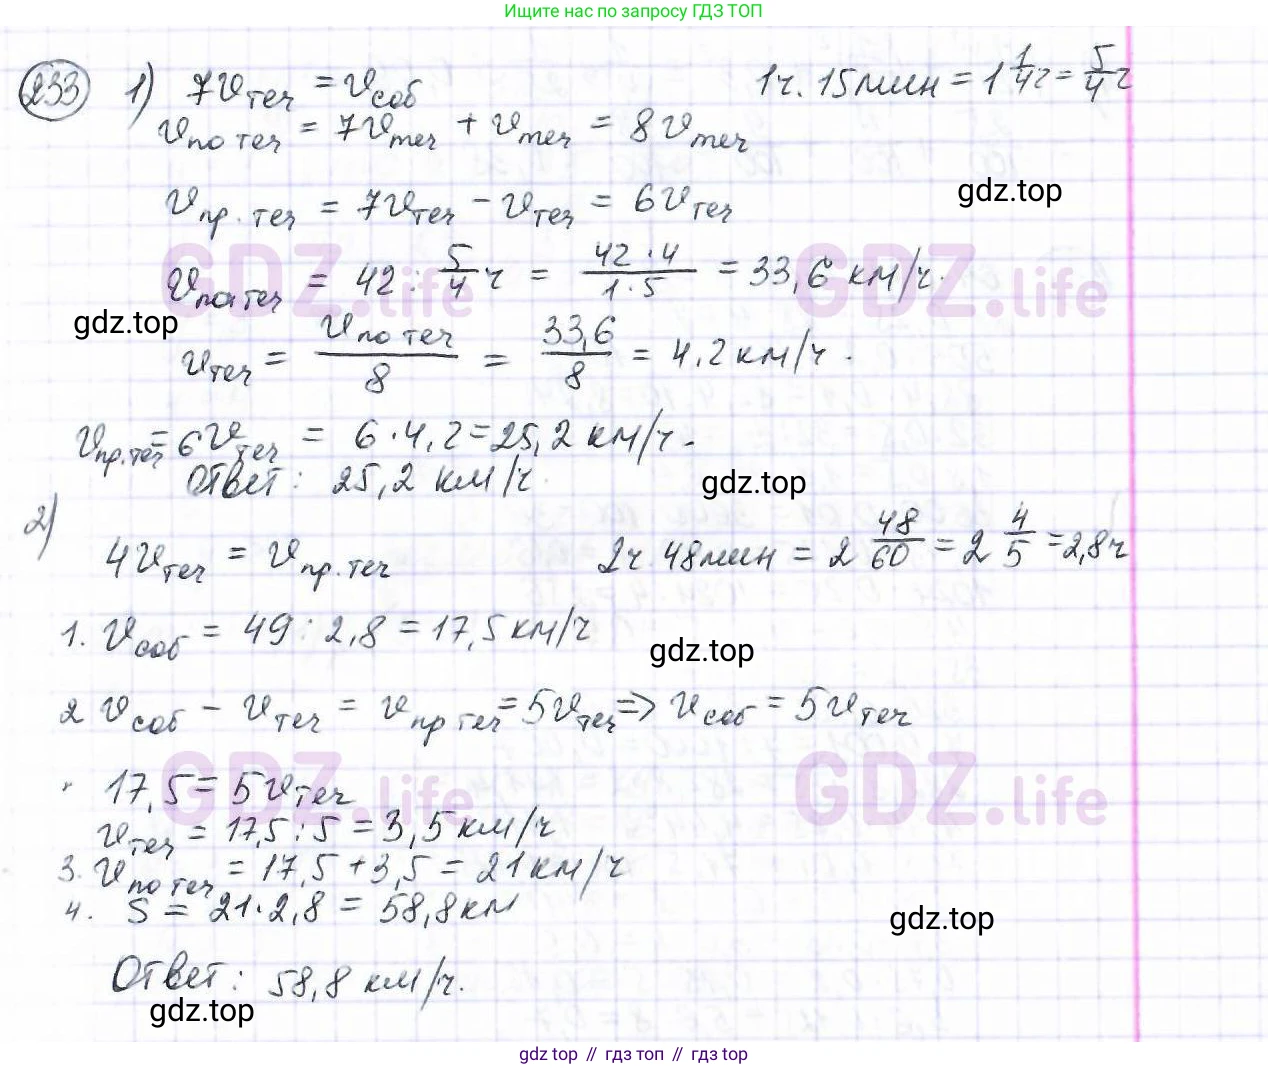 Ищите нас по запросу ГДЗ ТОП
233 1) 7vтеч = vсоб 1ч. 15мин = 1 1/4 ч = 5/4 ч
vпо теч = 7vтеч + vтеч = 8vтеч
gdz.top
vпр. теч = 7vтеч - vтеч = 6vтеч
GDZ.life GDZ.life
vпо теч = 42 : 5/4 ч = 42·4/1·5 = 33,6 км/ч.
gdz.top
vтеч = vпо теч/8 = 33,6/8 = 4,2 км/ч.
vпр.теч = 6vтеч = 6·4,2 = 25,2 км/ч.
Ответ: 25,2 км/ч.
gdz.top
2)
4vтеч = vпр.теч 2ч. 48мин = 2 48/60 = 2 4/5 = 2,8ч
1. vсоб = 49 : 2,8 = 17,5 км/ч
gdz.top
2 vсоб - vтеч = vпр теч = 5vтеч => vсоб = 5vтеч
GDZ.life GDZ.life
17,5 = 5vтеч
vтеч = 17,5 : 5 = 3,5 км/ч
3. vпо теч = 17,5 + 3,5 = 21 км/ч
4. S = 21·2,8 = 58,8 км
gdz.top
Ответ: 58,8 км/ч.
gdz.top
gdz top // гдз топ // gdz top